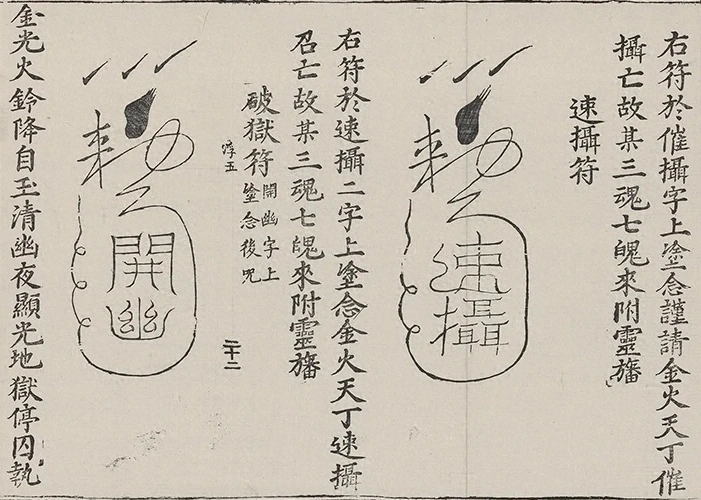 右符於催攝字上塗念謹請金火天丁催
攝亡故某三魂七魄來附靈旛
速攝符
敕
速攝
右符於速攝二字上塗念金火天丁速攝
召亡故某三魂七魄來附靈旛
破獄符 開幽字上塗念後咒
淳五
二十二
敕
開幽
金光火鈴降自玉清幽夜顯光地獄停囚執